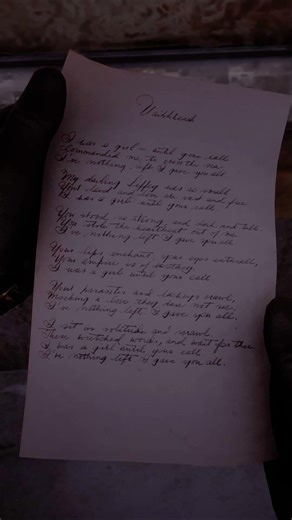 I was a girl – until your call
Commanded me to
I've nothing left I give you all
My darling was so small
Your and and
I was a girl until your call
You stood so strong, and and tall
You stole the heartbeat out of me
I've nothing left I give you all
Your lips enchant, your eyes enthrall,
Your empire is of ecstasy
I was a girl until your call
Your and lackeys crawl,
Mocking a love they
I've nothing left I give you all.
I sit in solitude and scrawl
These wretched words, and wait for thee
I was a girl until your call
I've nothing left I gave you all.